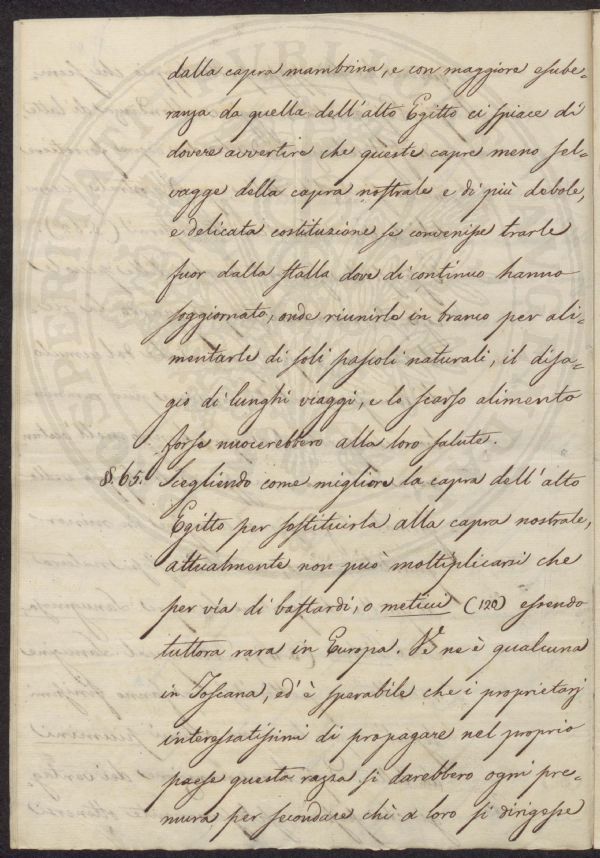 dalla capra mambrina, e con maggiore esube-
ranza da quella dell'alto Egitto ci spiace di
dovere avvertire che queste capre meno sel-
vagge della capra nostrale e di più debole,
e delicata costituzione se convenisse trarle
fuor dalla stalla dove di continuo hanno
soggiornato, onde riunirle in branco per ali-
mentarle di soli pascoli naturali, il disa-
gio di lunghi viaggi, e lo scarso alimento
forse nuocerebbero alla loro salute.
§. 65. Scegliendo come migliore la capra dell'alto
Egitto per sostituirla alla capra nostrale,
attualmente non può moltiplicarsi che
per via di bastardi, o meticci (120) essendo
tuttora rara in Europa. Ve ne è qualcuna
in Toscana, ed'è sperabile che i proprietarj
interessatissimi di propagare nel proprio
paese questa razza si darebbero ogni pre-
mura per secondare chi a loro si dirigesse